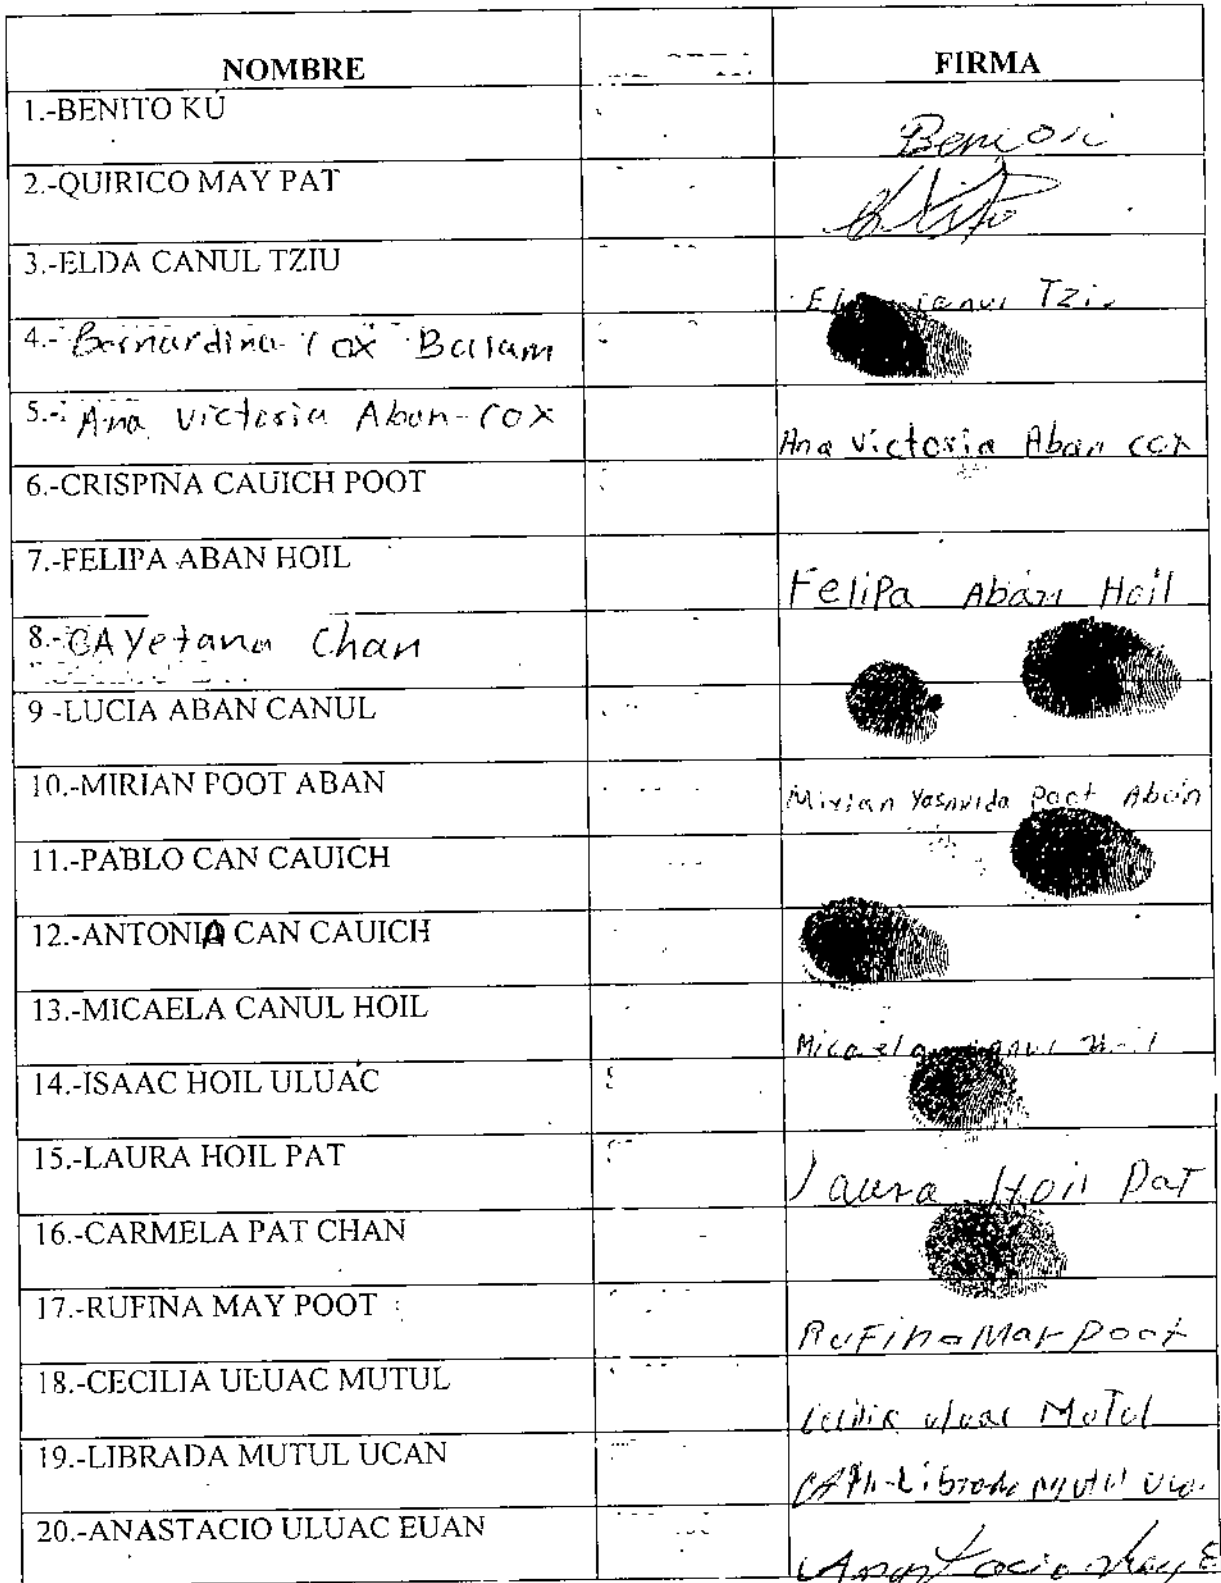 NOMBRE FIRMA
1.-BENITO KÚ
2.-QUIRICO MAY PAT
3.-ELDA CANUL TZIU
Tzi
4.- Bernardina Cox Balam
5.- Ana Victoria Aban Cox
Ana Victoria Aban cox
6.-CRISPINA CAUICH POOT
7.-FELIPA ABAN HOIL
Felipa Abán Hoil
8.- CAYetana Chan
9 -LUCIA ABAN CANUL
10.-MIRIAN POOT ABAN
Mirian Yasnvida Poot Abán
11.-PABLO CAN CAUICH
12.-ANTONIA CAN CAUICH
13.-MICAELA CANUL HOIL
Micaela
14.-ISAAC HOIL ULUAC
15.-LAURA HOIL PAT
Laura Hoil Pat
16.-CARMELA PAT CHAN
17.-RUFINA MAY POOT
RuFina May Poot
18.-CECILIA ULUAC MUTUL
uluac MuTul
19.-LIBRADA MUTUL UCAN
Librada Mutul
20.-ANASTACIO ULUAC EUAN
Anastacio